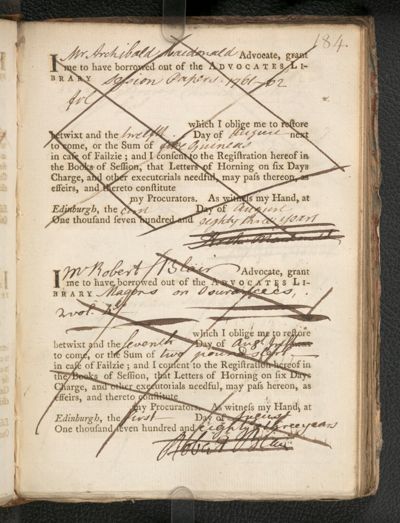 184.
I Mr. Archibald Macdonald Advocate, grant
me to have borrowed out of the ADVOCATES LI-
BRARY Session Papers. 1761-62
fol
which I oblige me to restore
betwixt and the twelfth Day of August next
to come, or the Sum of five Guineas
in case of Failzie; and I consent to the Registration hereof in
the Books of Session, that Letters of Horning on six Days
Charge, and other executorials needful, may pass thereon, as
effeirs, and thereto constitute
my Procurators. As witness my Hand, at
Edinburgh, the Day of August
One thousand seven hundred and eighty three years
I Mr Robert Blair Advocate, grant
me to have borrowed out of the ADVOCATES LI-
BRARY on Insurances,
2 vol.
which I oblige me to restore
betwixt and the seventh Day of Augt
to come, or the Sum of two pounds ster.
in case of Failzie; and I consent to the Registration hereof in
the Books of Session, that Letters of Horning on six Days
Charge, and other executorials needful, may pass thereon, as
effeirs, and thereto constitute
my Procurators. As witness my Hand, at
Edinburgh, the first Day of August
One thousand seven hundred and eighty three years
Robert Blair